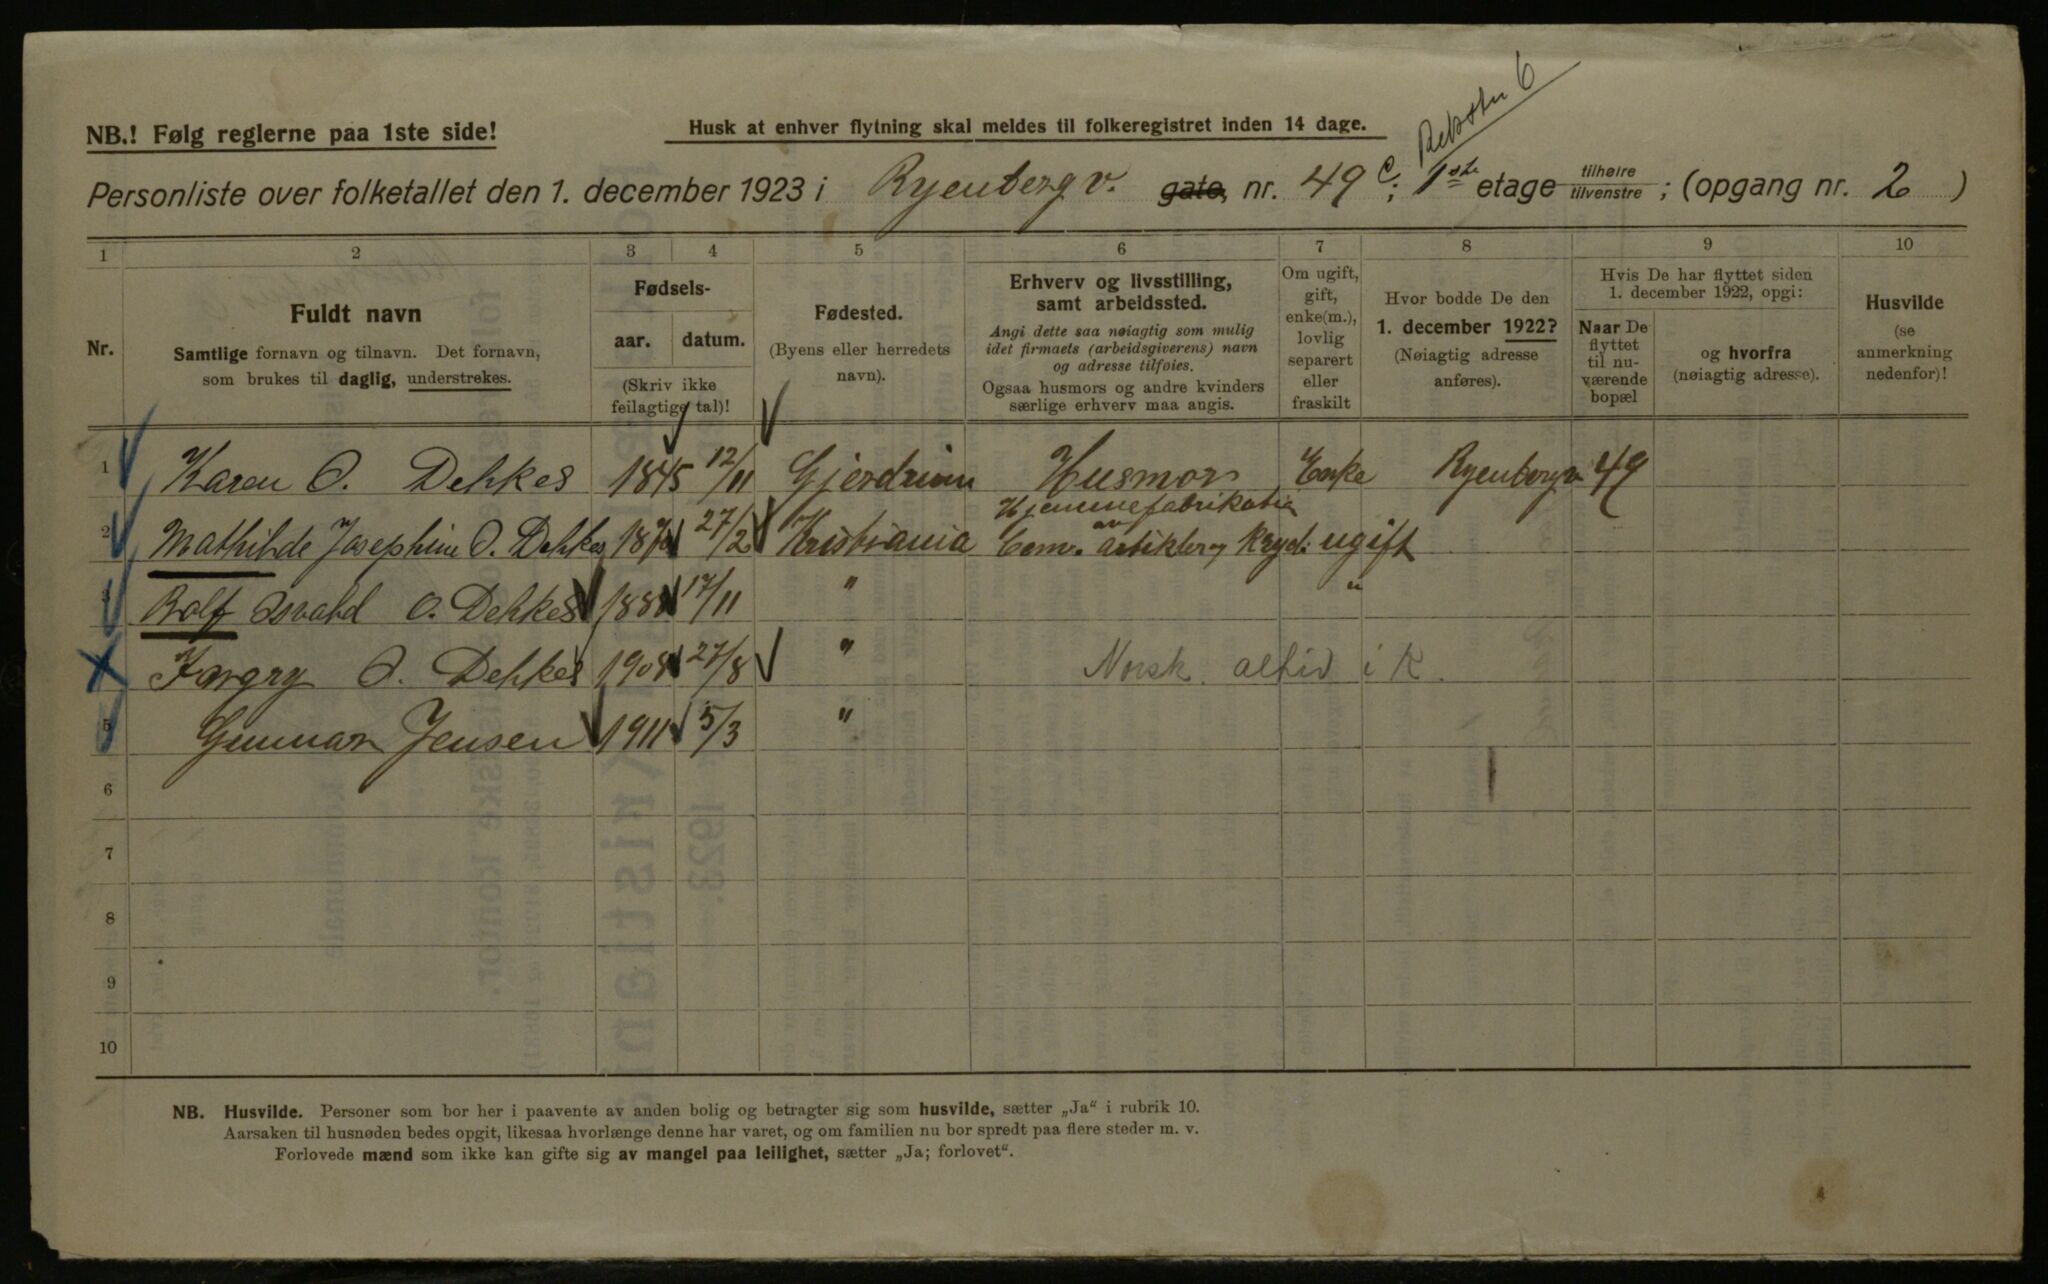 NB.! Følg reglerne paa 1ste side!
Husk at enhver flytning skal meldes til folkeregistret inden 14 dage.
6
Personliste over folketallet den 1. december 1923 i Ryenberg v. gate, nr. 49 c; 1ste etage tilhøire tilvenstre ; (opgang nr. 2 )
1 2 3 4 5 6 7 8 9 10
Nr.
Fuldt navn
Samtlige fornavn og tilnavn. Det fornavn,
som brukes til daglig, understrekes.
Fødsels-
aar. datum.
(Skriv ikke
feilagtige tal)!
Fødested.
(Byens eller herredets
navn).
Erhverv og livsstilling,
samt arbeidssted.
Angi dette saa nøiagtig som mulig
idet firmaets (arbeidsgiverens) navn
og adresse tilføies.
Ogsaa husmors og andre kvinders
særlige erhverv maa angis.
Om ugift,
gift,
enke(m.),
lovlig
separert
eller
fraskilt
Hvor bodde De den
1. december 1922?
(Nøiagtig adresse
anføres).
Hvis De har flyttet siden
1. december 1922, opgi:
Naar De
flyttet
til nu-
værende
bopæl
og hvorfra
(nøiagtig adresse).
Husvilde
(se
anmerkning
nedenfor)!
1 Karen O. Dehkes 1845 12/11 Gjerdrum Husmor Enke Ryenbergv 49
Hjemmefabrikation
2 Mathilde Josephine O. Dehkes 27/2 Kristiania av artikler ugift
3 Rolf Osvald O. Dehkes 188 17/11 " "
O. Dehkes 1908 27/8 " Norsk. altid i K.
5 Gunnar Jensen 1911 5/3 "
6
7
8
9
10
NB. Husvilde. Personer som bor her i paavente av anden bolig og betragter sig som husvilde, sætter „Ja“ i rubrik 10.
Aarsaken til husnøden bedes opgit, likesaa hvorlænge denne har varet, og om familien nu bor spredt paa flere steder m. v.
Forlovede mænd som ikke kan gifte sig av mangel paa leilighet, sætter „Ja; forlovet“.